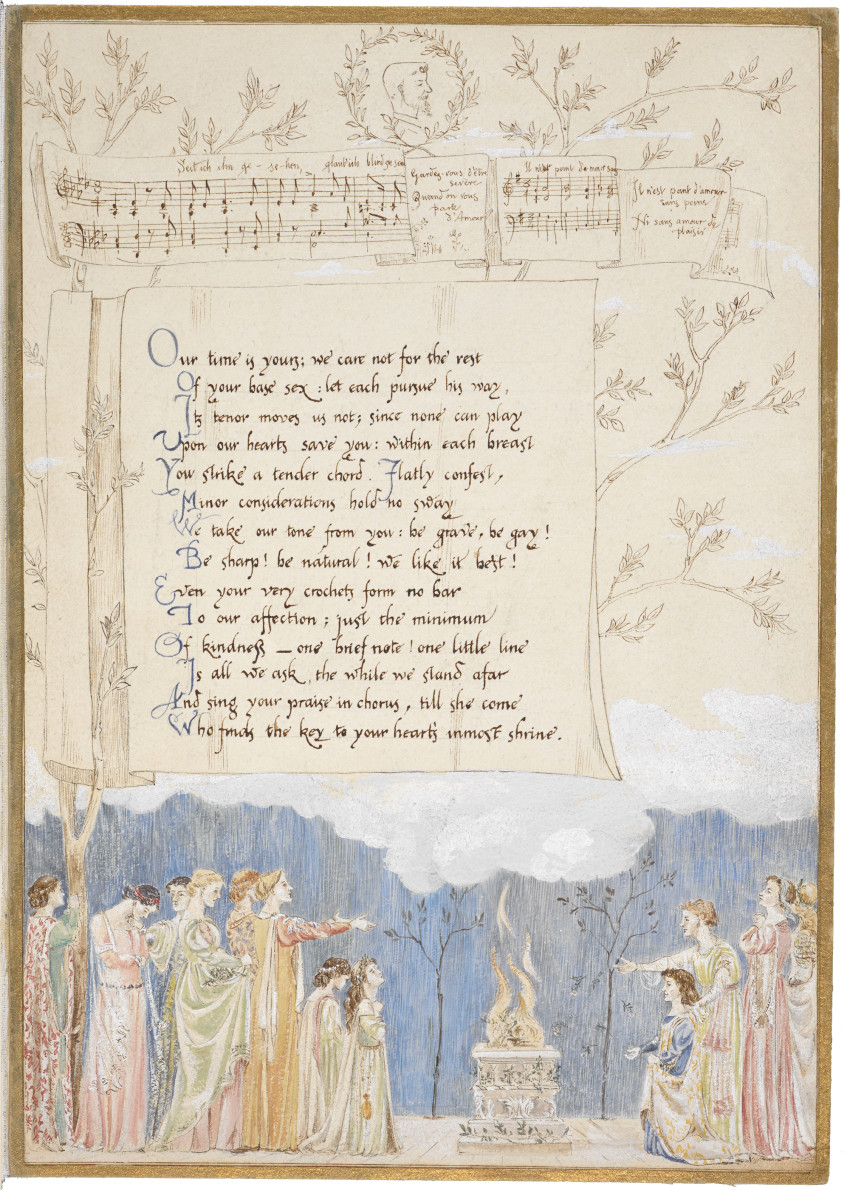 Seit ich ihn ge - se - hen, glaub' ich blind ge sein
Gardez-vous d'être
sevère
Quand on vous
parle
d'Amour
Il n'est point d'amour
sans peine
Ni sans amour de
plaisir
Our time is yours; we care not for the rest
Of your base sex: let each pursue his way,
Its tenor moves us not; since none can play
Upon our hearts save you: within each breast
You strike a tender chord. Flatly confest,
Minor considerations hold no sway
We take our tone from you: be grave, be gay!
Be sharp! be natural! we like it best!
Even your very crochets form no bar
To our affection; just the minimum
Of kindness — one brief note! one little line
Is all we ask, the while we stand afar
And sing your praise in chorus, till she come
Who finds the key to your heart's inmost shrine.